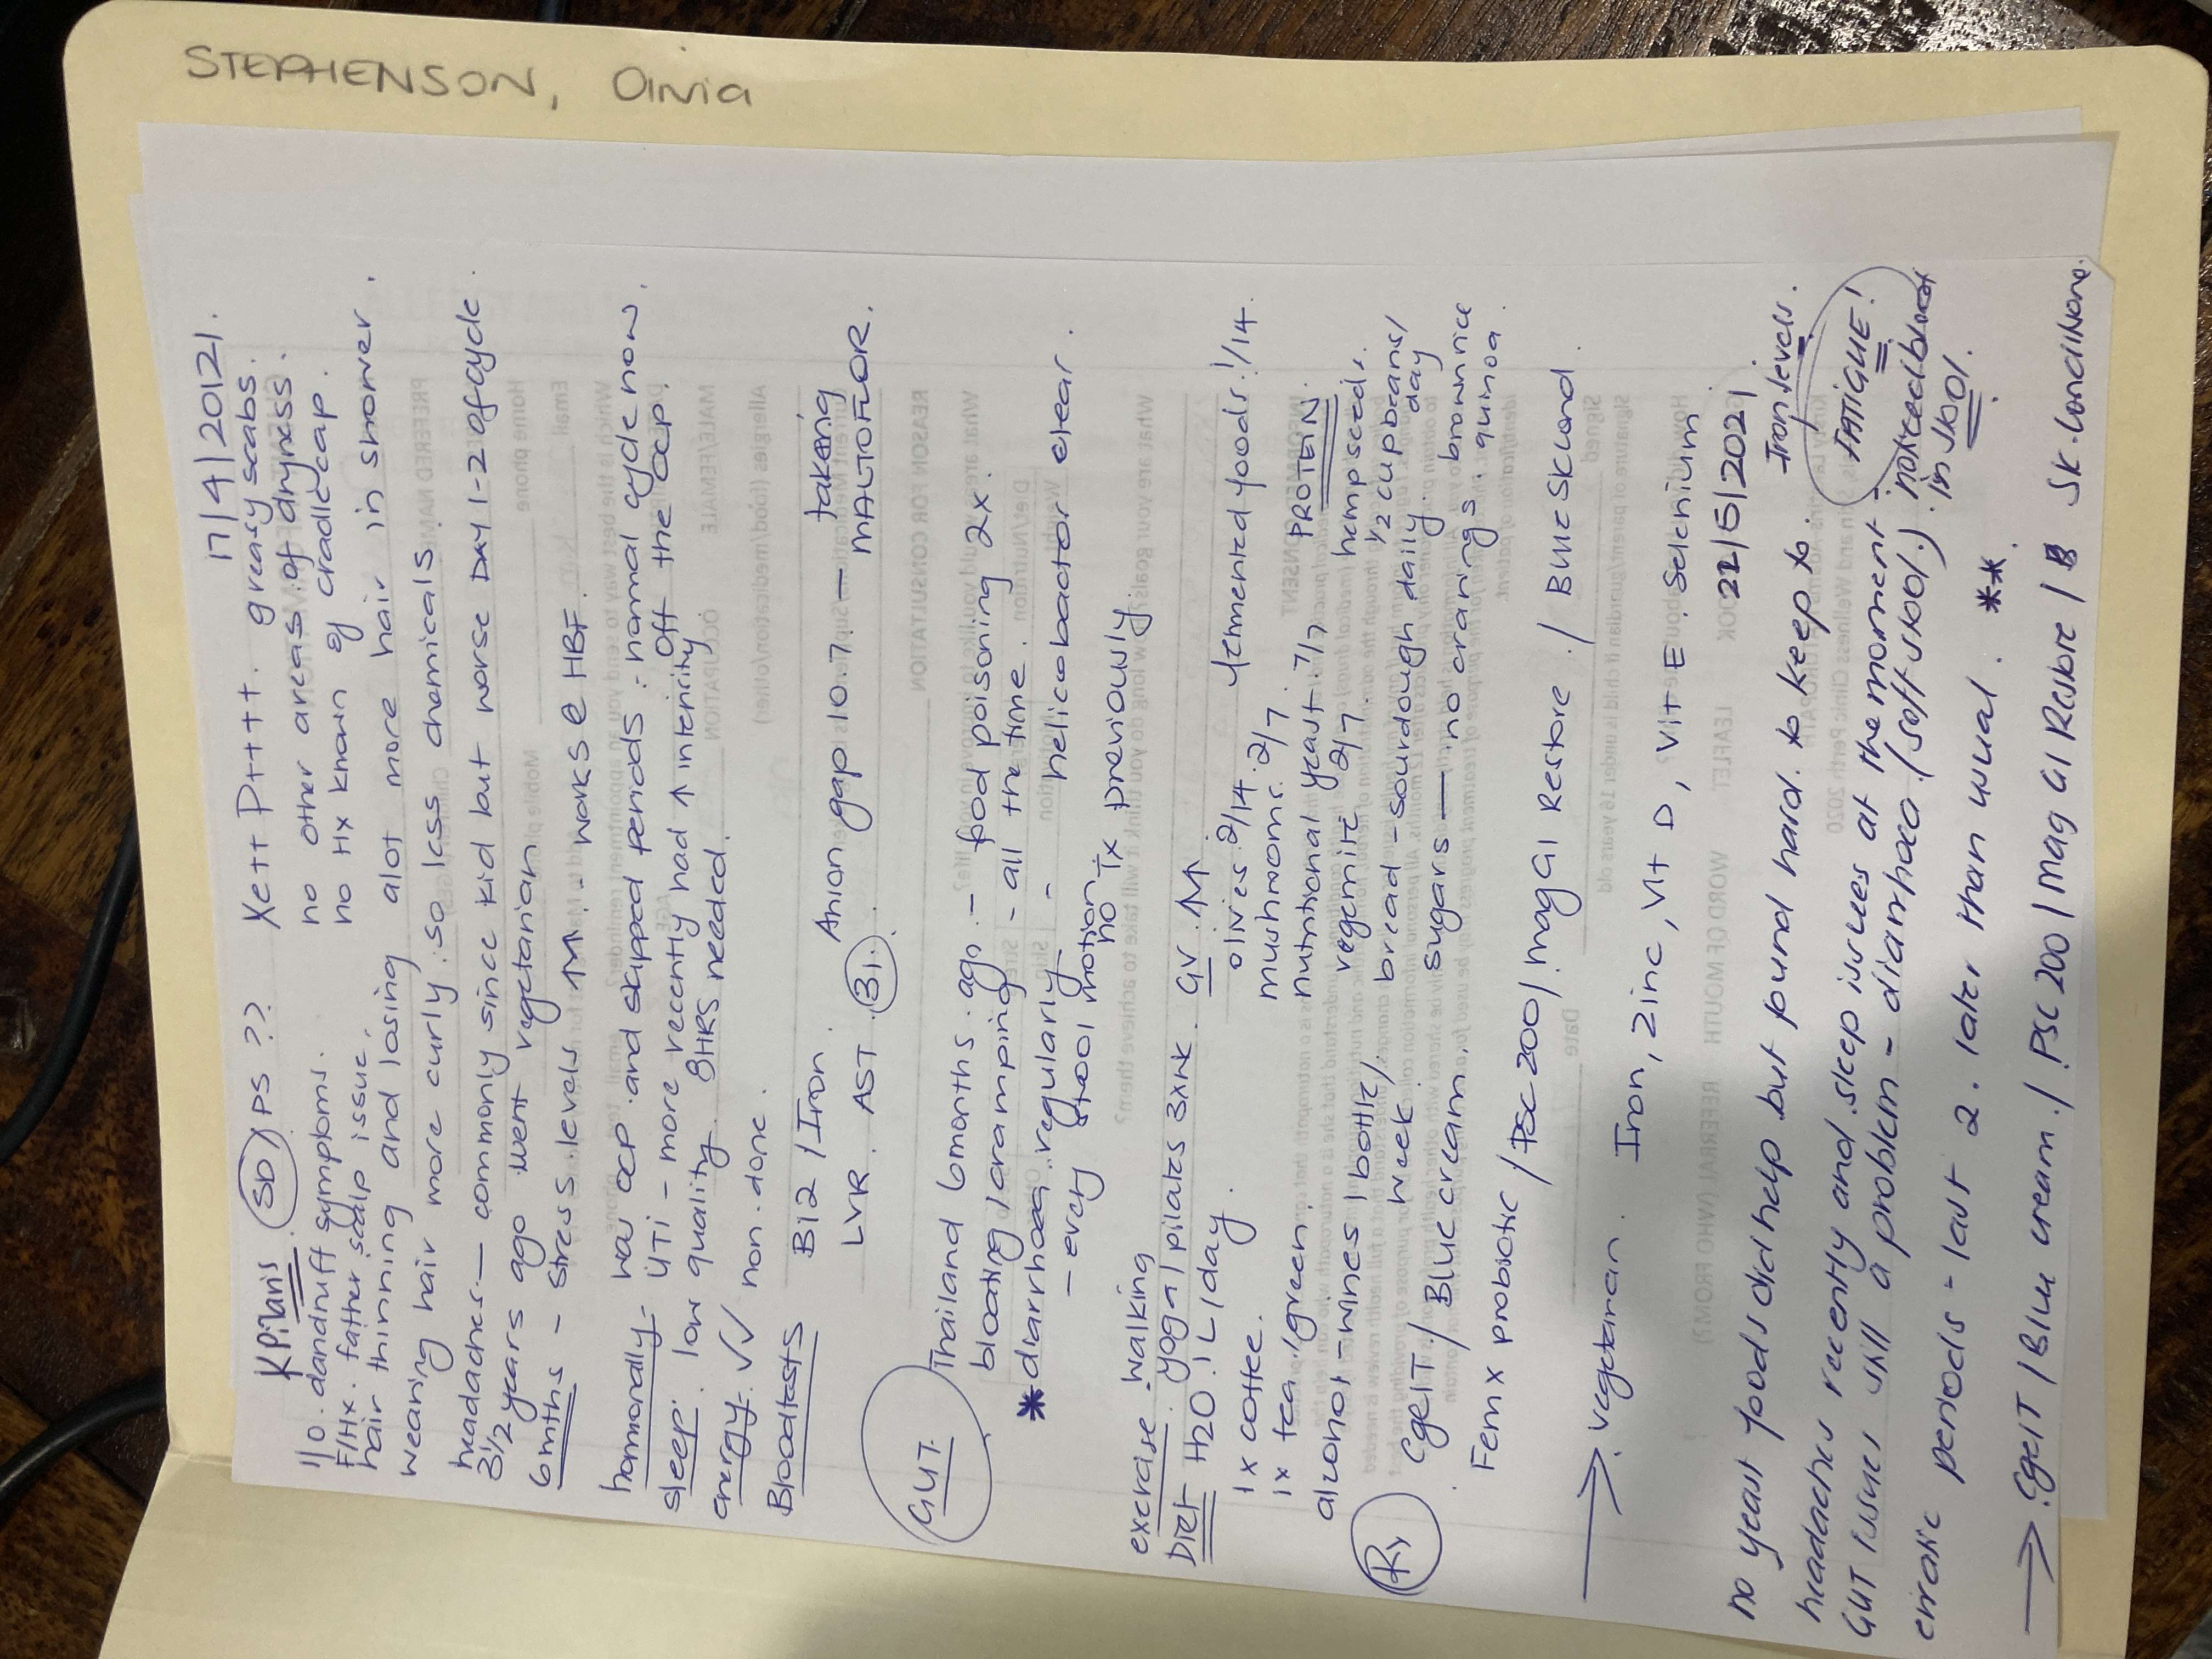 STEPHENSON, Olivia
17/4/20121
K Pilaris SD / PS ?? Xett P++++. greasy scabs.
110. dandruff symptoms. no other areas of dryness.
F/Hx. father scalp issue. no Hx known of cradle cap.
hair thinning and losing alot more hair in shower.
wearing hair more curly. so less chemicals.
headaches - commonly since kid but worse DAY 1-2 of cycle.
3 1/2 years ago went vegetarian.
6mths - stress levels ↑M. - works @ HBF.
hormonally - was OCP and skipped periods - normal cycle now.
UTI - more recently had ↑ intensity off the OCP.
sleep: low quality. 8HRS needed.
energy. ✓✓ non-done.
Bloodtests B12 / Iron. Anion gap 10.7 - taking
LVR. AST. 31. MAUTOFLOR.
GUT. Thailand 6 months ago. - food poisoning 2x.
bloating / cramping - all the time.
* diarrhoea regularly - helicobacter clear.
- every stool motion no Tx previously.
exercise - walking
yoga / pilates 3xwk. GV. ↑M
DIET H2O. 1L / day. olives 2/14. fermented foods 1/14.
1x coffee. mushrooms. 2/7
1x tea / green. nutritional yeast. 7/7 PROTEIN
alcohol - wines 1 bottle / week. vegemite 2/7. hempseeds.
1/2 cup beans / day
bread - sourdough daily.
sugars - no cravings. brown rice
quinoa.
Rx CgelT / Blue cream.
Femx probiotic / PSC 200 / mag GI Restore. / Blue SK Cond.
→ vegetarian. Iron, Zinc, Vit D, Vit E. Selenium
22/5/2021
no yeast foods did help but found hard to keep to. Iron levels.
headaches recently and sleep issues at the moment. FATIGUE!
GUT issues still a problem - diarrhoea (soft stool.) noticed blood
in stool.
erratic periods - last 2. later than usual. **
→ CgelT / Blue cream. / PSC 200 / Mag GI Restore / B SK. Conditioner.